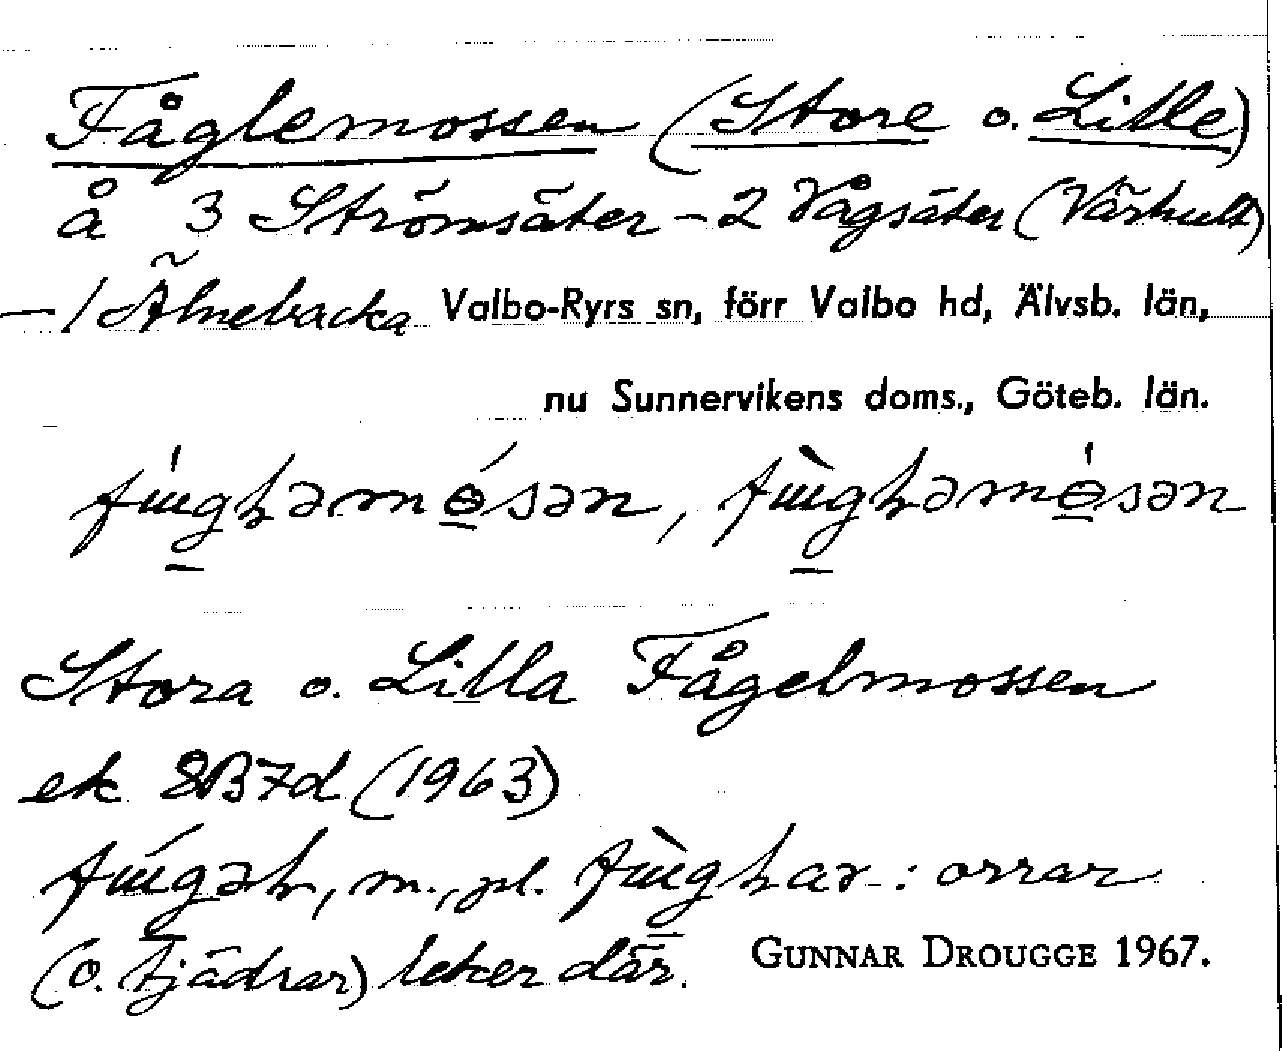 Fåglemossen (Store o. Lille)
å 3 Strömsäter – 2 Vågsäter (Värhult)
– 1 Älnebacka Valbo-Ryrs sn, förr Valbo hd, Älvsb. län,
nu Sunnervikens doms., Göteb. län.
Stora o. Lilla Fågelmossen
ek 8B7d (1963)
m., pl. : orrar
(o. tjädrar) leker där. GUNNAR DROUGGE 1967.